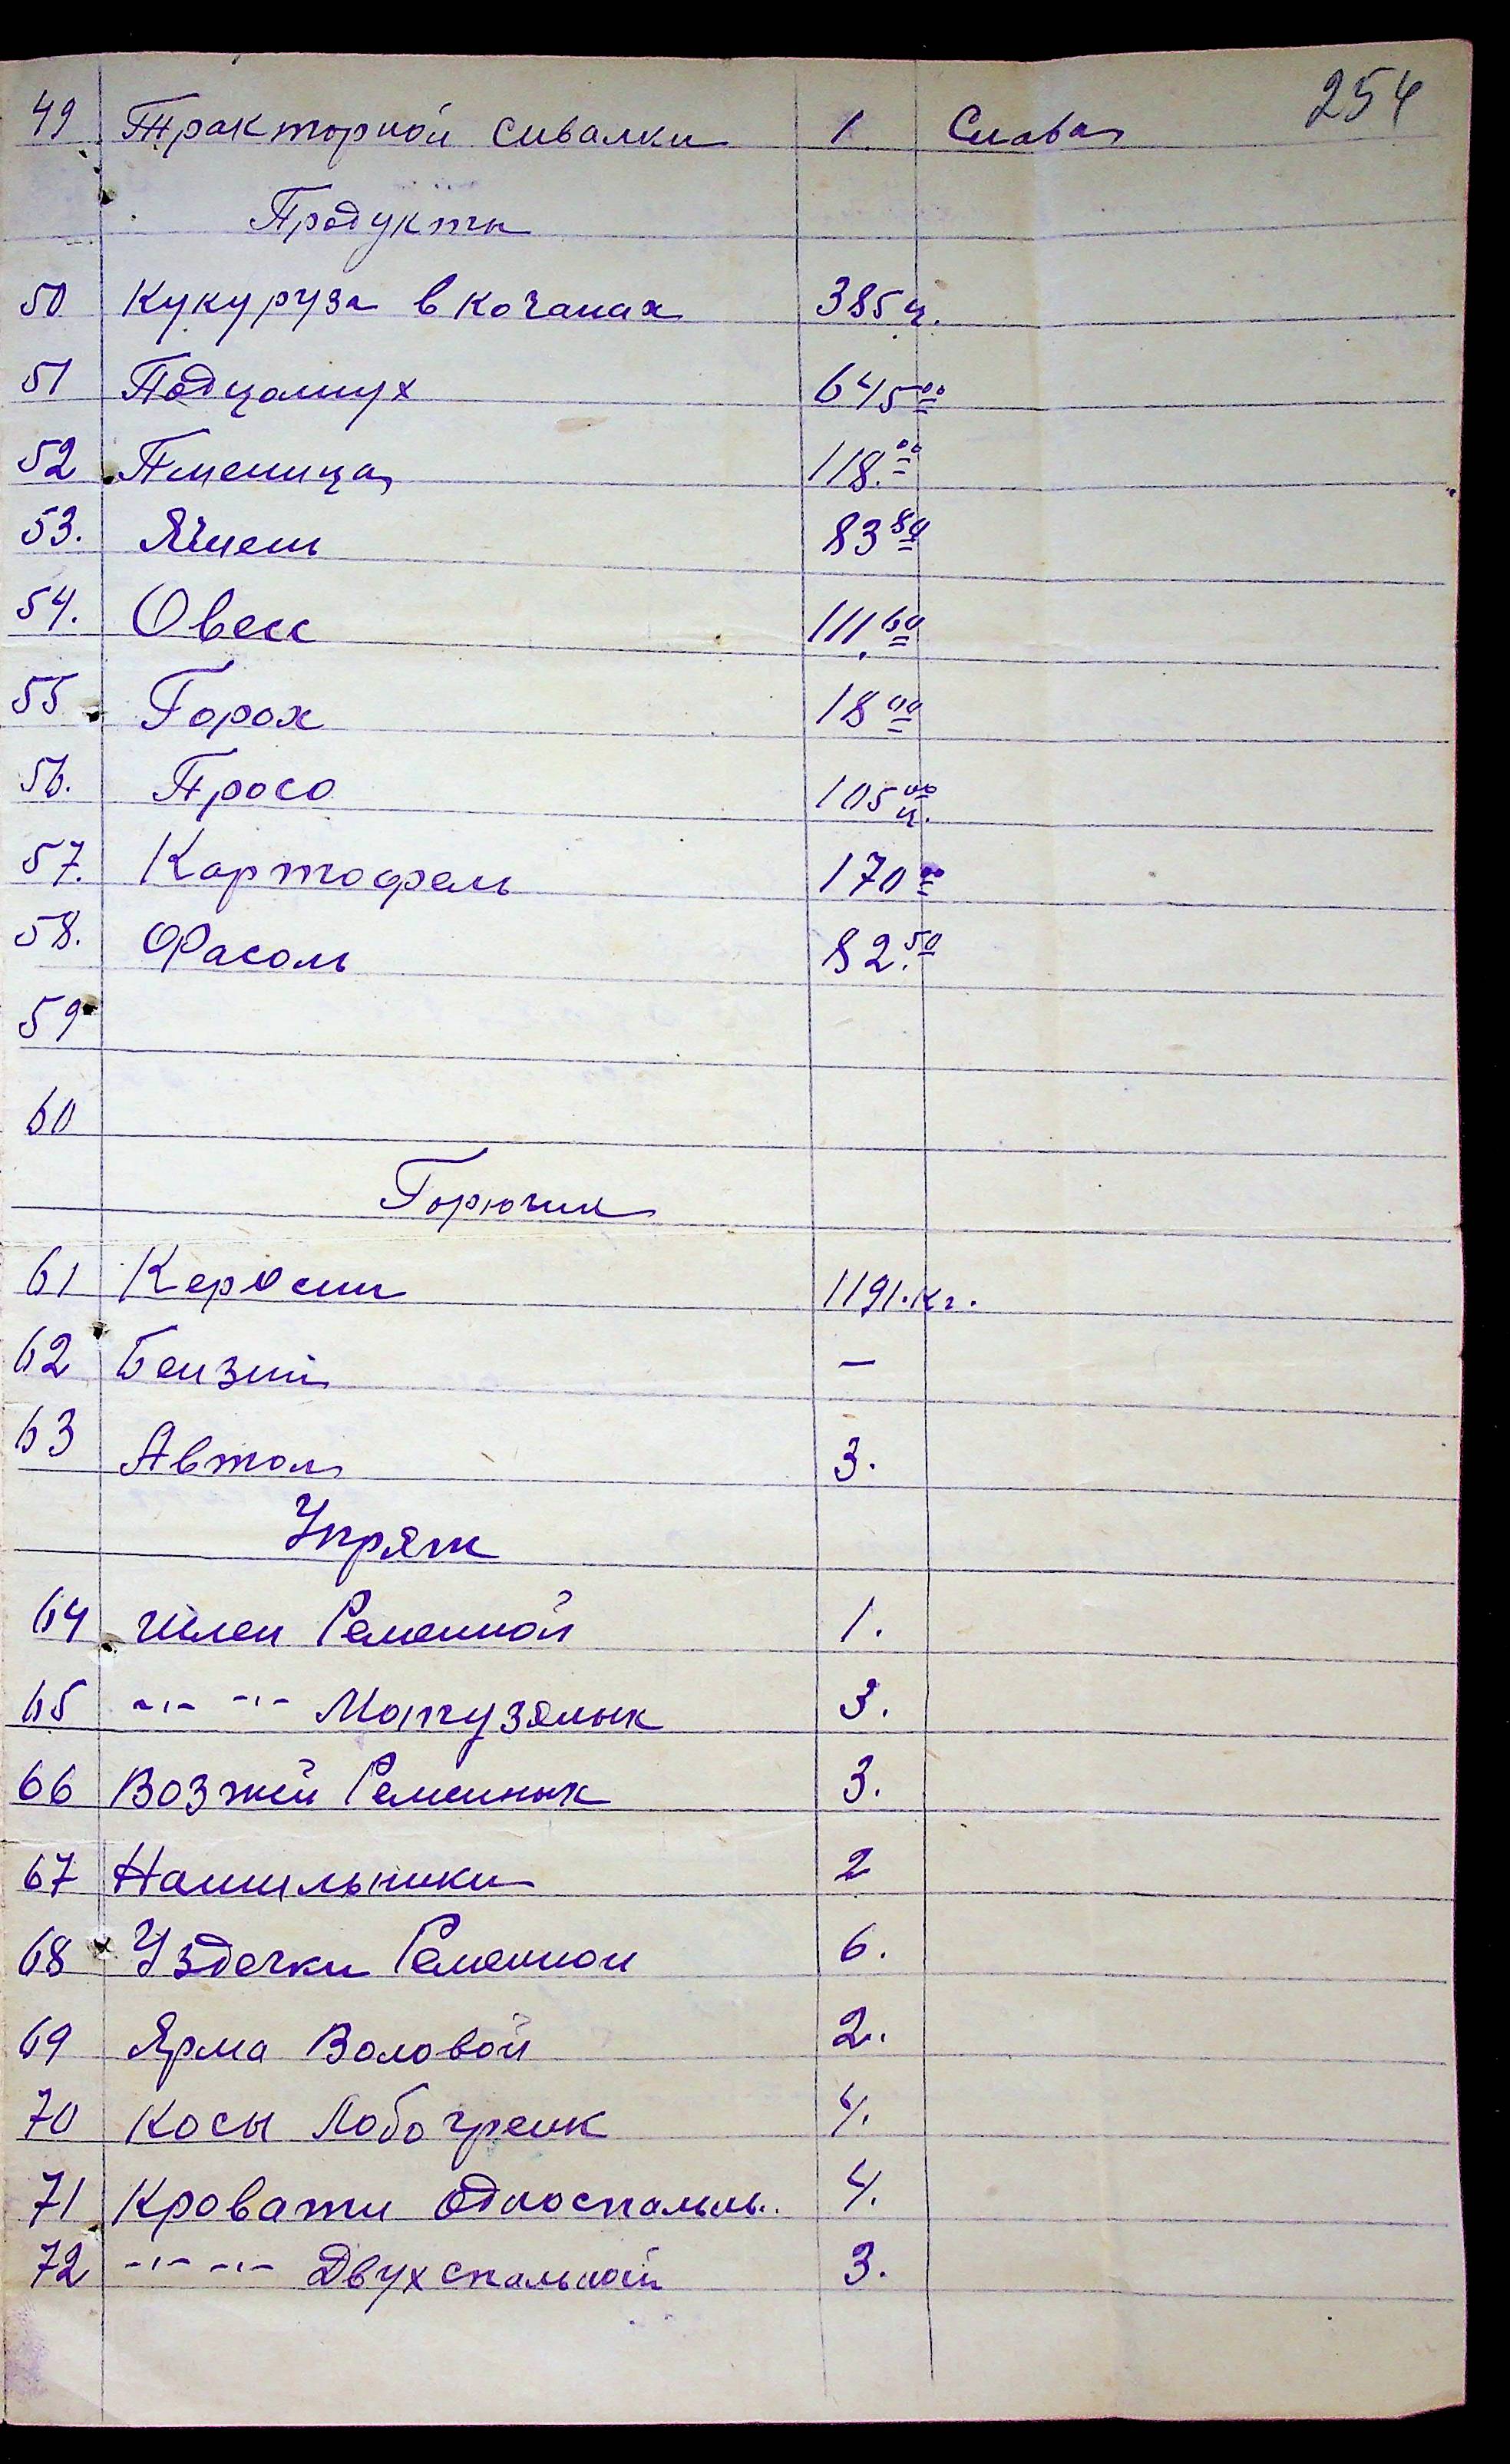 254
49 Тракторной сивалки 1. Слава
Продукты
50 Кукуруза в кочанах 385 ц.
51 Подсолнух 645 00
52 Пшеница 118. 00
53. Ячмень 83 80
54. Овесс 111. 60
55 Горох 18 00
56. Просо 105 00 ц.
57. Картофель 170 00
58. Фасоль 82. 50
59
60
Горючих
61 Керосин 1191. кг.
62 Бензин —
63 Автол 3.
Упряж
64 шлеи Ременной 1.
65 -"- -"- 3.
66 Возжей Ременных 3.
67 2
68 Уздечки Ременной 6.
69 Ярма Воловой 2.
70 Косы Лобогреик 4.
71 Кровати односпальн.. 4.
72 -"- -"- Двухспальной 3.